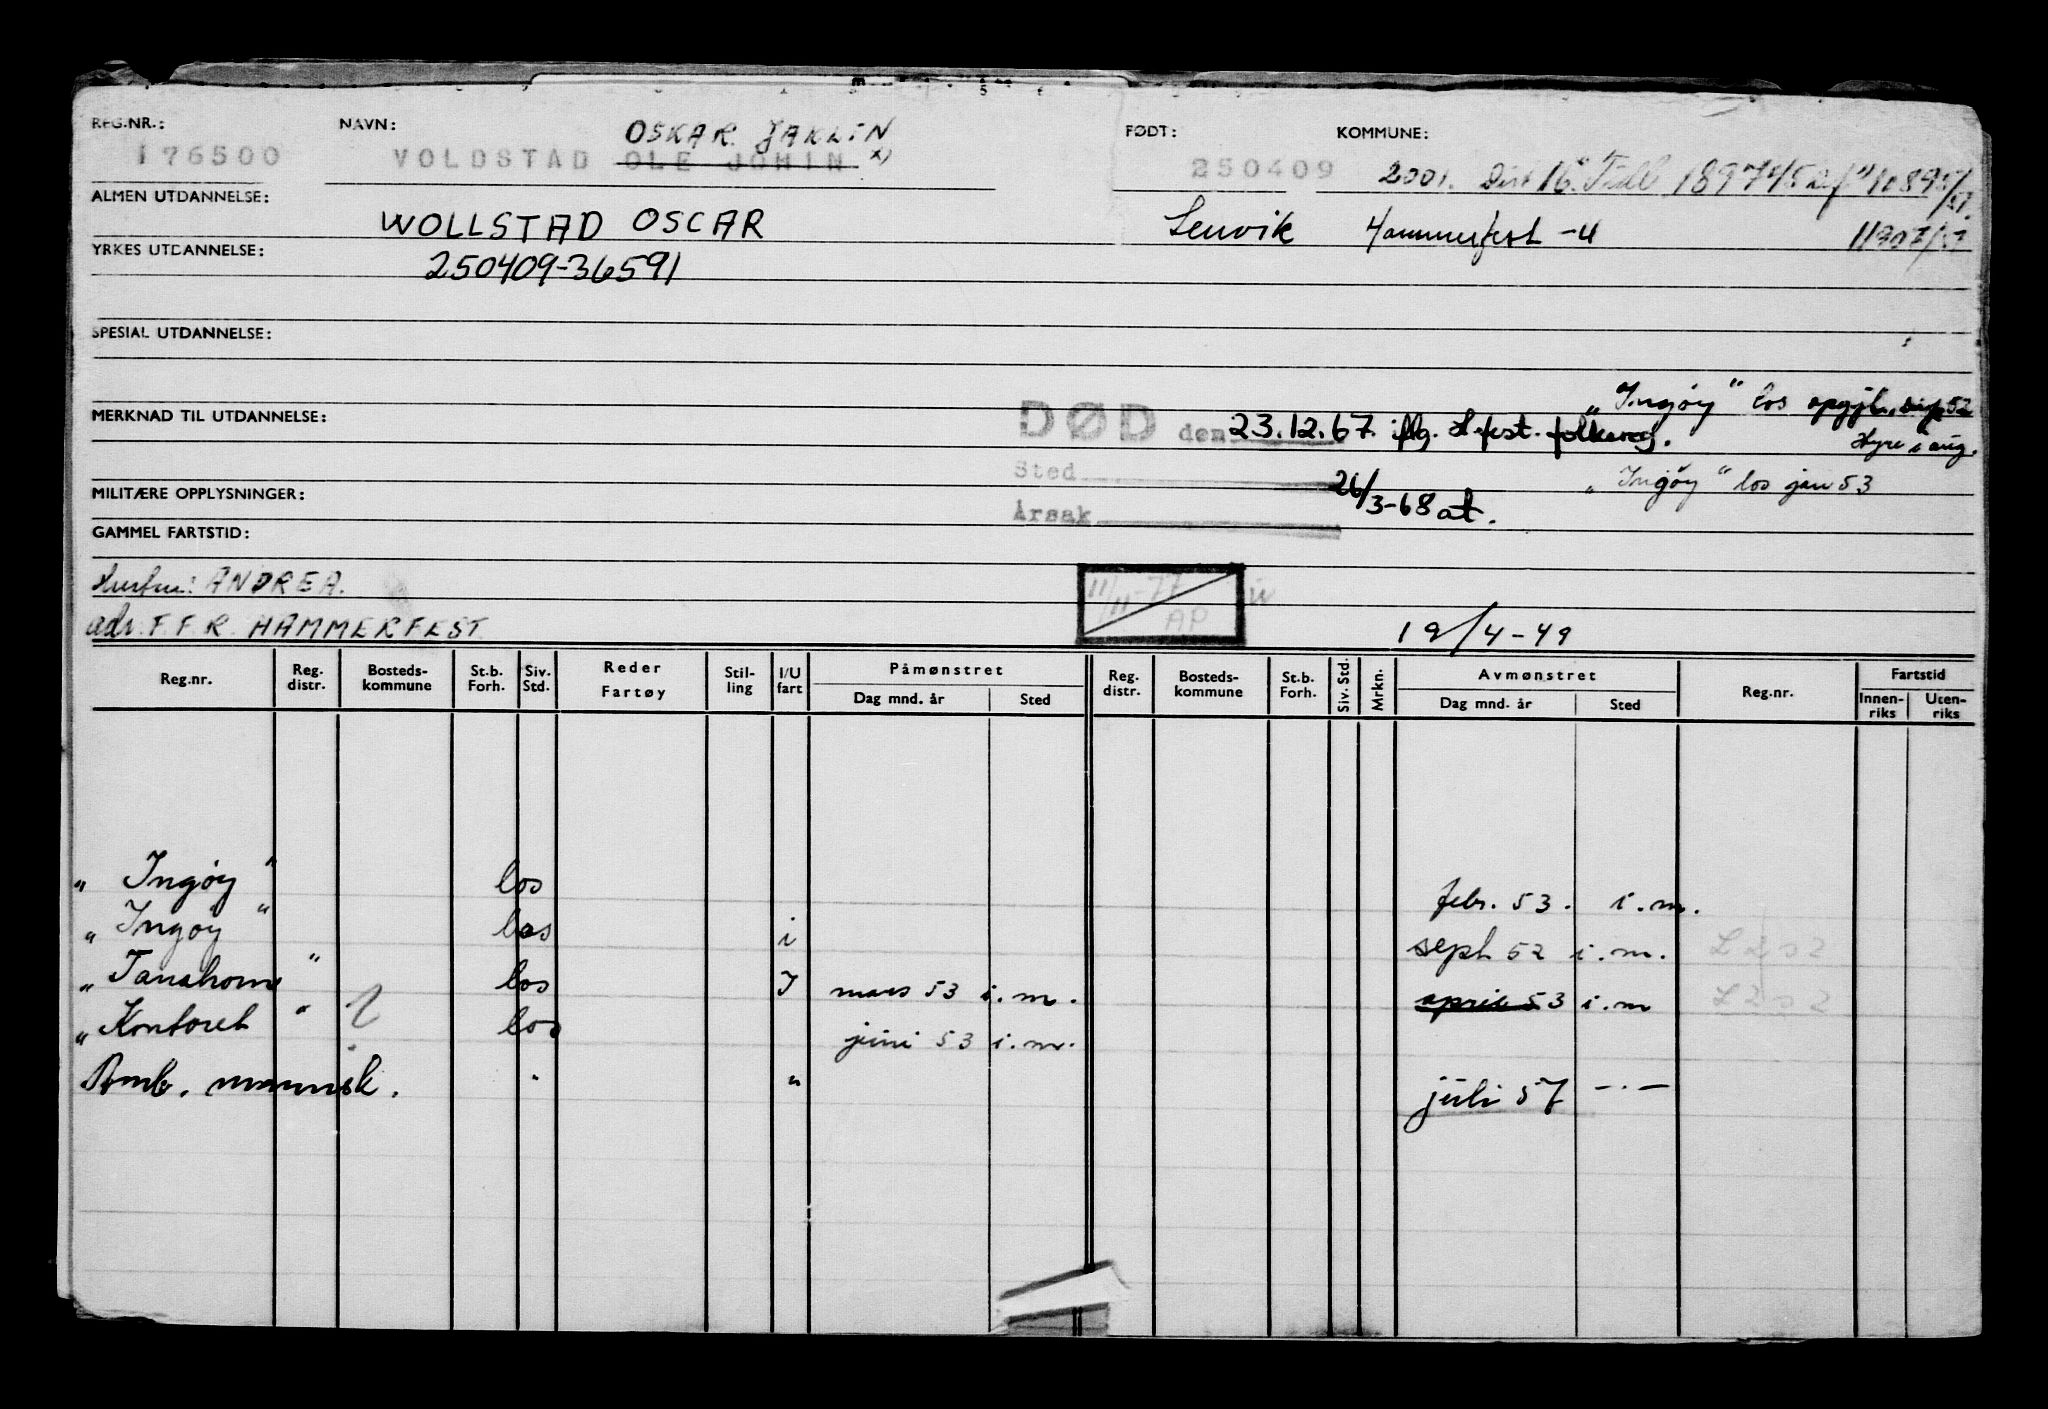 REG.NR.: NAVN: OSKAR JAKLIN FØDT: KOMMUNE:
176500 VOLDSTAD OLE JOHIN x) 250409 2001.
ALMEN UTDANNELSE: WOLLSTAD OSCAR Lenvik Hammerfest -U
YRKES UTDANNELSE: 250409-36591
SPESIAL UTDANNELSE:
„Ingöy" los
MERKNAD TIL UTDANNELSE: DØD den 23.12.67. iflg. H.fest. folkereg. Hyre i aug.
Sted „Ingöy" los jan 53
MILITÆRE OPPLYSNINGER: 26/3-68 at.
Årsak
GAMMEL FARTSTID:
Hustru: ANDREA. 11/11-77 AP
adr. F F R. HAMMERFEST 19/4-49
Reg.nr. Reg. distr. Bosteds-kommune St.b. Forh. Siv. Std. Reder Fartøy Stil-ling I/U fart Påmønstret Dag mnd. år Sted Reg. distr. Bosteds-kommune St.b. Forh. Siv. Std. Mrkn. Avmønstret Dag mnd. år Sted Reg.nr. Fartstid Innen-riks Uten-riks
„Ingöy" los febr. 53. i.m.
„Ingöy" los i sept 52 i.m. L 2 s 2
„Tanahorn" los I mars 53 i.m. april 53 i.m L 2 s 2
„Kontoret" los juni 53 i.m.
Amb. mannsk. " " juli 57 —·—